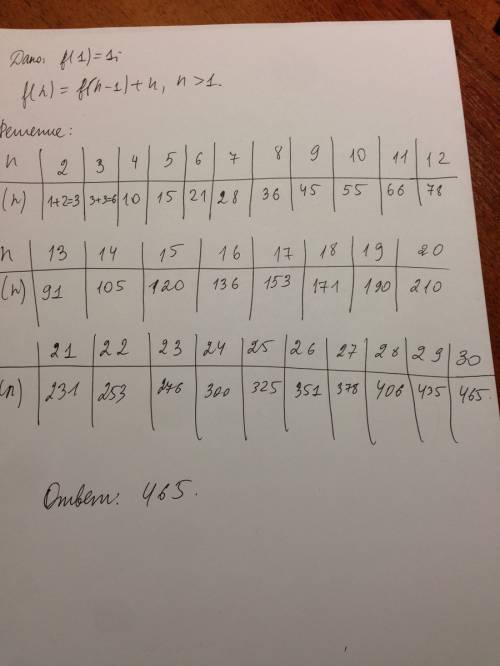 Дано: f(1)=1;
f(n) = f(n-1)+n, n>1.
Решение:
n 2 3 4 5 6 7 8 9 10 11 12
(n) 1+2=3 3+3=6 10 15 21 28 36 45 55 66 78
n 13 14 15 16 17 18 19 20
(n) 91 105 120 136 153 171 190 210
21 22 23 24 25 26 27 28 29 30
(n) 231 253 276 300 325 351 378 406 435 465
Ответ: 465.